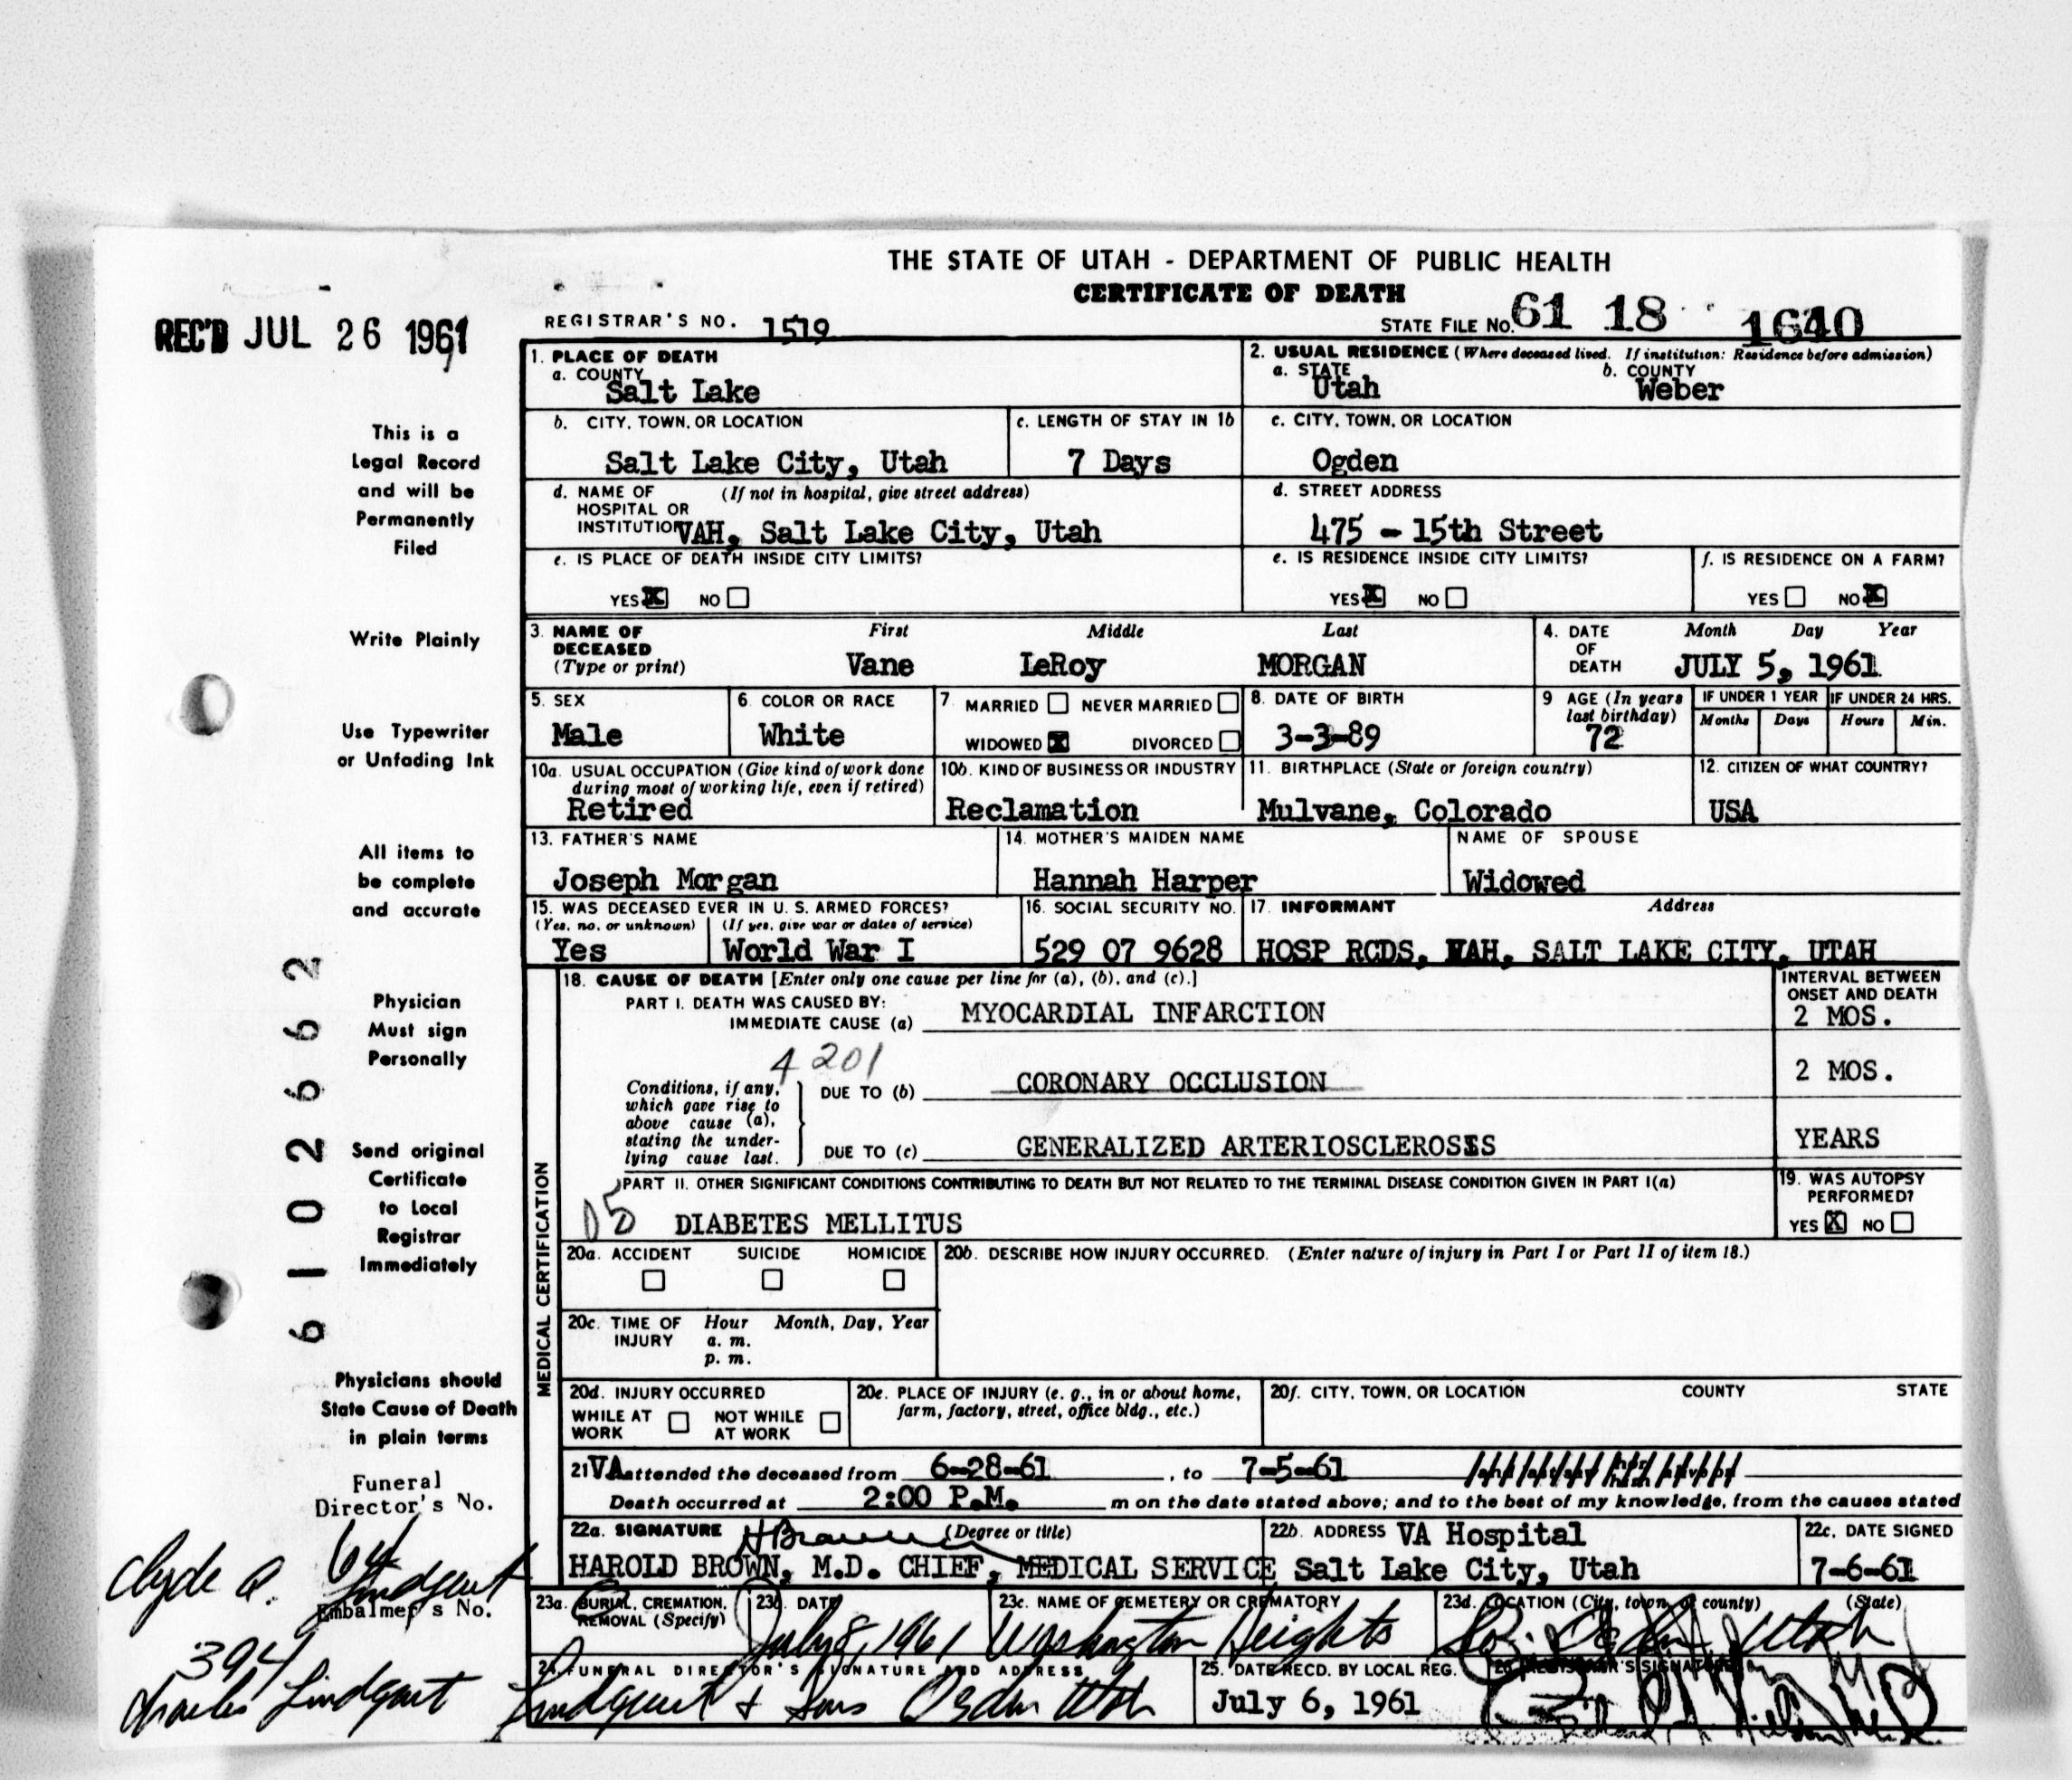 THE STATE OF UTAH - DEPARTMENT OF PUBLIC HEALTH
CERTIFICATE OF DEATH
REC'D JUL 26 1961
REGISTRAR'S NO. 1519
STATE FILE NO. 61 18 1640
This is a
Legal Record
and will be
Permanently
Filed
Write Plainly
Use Typewriter
or Unfading Ink
All items to
be complete
and accurate
Physician
Must sign
Personally
Send original
Certificate
to Local
Registrar
Immediately
Physicians should
State Cause of Death
in plain terms
Funeral
Director's No.
64
Clyde A. Lindquist
Embalmer's No.
394
Charles Lindquist
6102662
1. PLACE OF DEATH
a. COUNTY
Salt Lake
2. USUAL RESIDENCE (Where deceased lived. If institution: Residence before admission)
a. STATE b. COUNTY
Utah Weber
b. CITY, TOWN, OR LOCATION
Salt Lake City, Utah
c. LENGTH OF STAY IN 1b
7 Days
c. CITY, TOWN, OR LOCATION
Ogden
d. NAME OF (If not in hospital, give street address)
HOSPITAL OR
INSTITUTION VAH, Salt Lake City, Utah
d. STREET ADDRESS
475 - 15th Street
e. IS PLACE OF DEATH INSIDE CITY LIMITS?
YES X NO
e. IS RESIDENCE INSIDE CITY LIMITS?
YES X NO
f. IS RESIDENCE ON A FARM?
YES NO X
3. NAME OF First Middle Last
DECEASED
(Type or print) Vane LeRoy MORGAN
4. DATE Month Day Year
OF
DEATH JULY 5, 1961
5. SEX
Male
6. COLOR OR RACE
White
7. MARRIED NEVER MARRIED
WIDOWED X DIVORCED
8. DATE OF BIRTH
3-3-89
9 AGE (In years
last birthday)
72
IF UNDER 1 YEAR IF UNDER 24 HRS.
Months Days Hours Min.
10a. USUAL OCCUPATION (Give kind of work done
during most of working life, even if retired)
Retired
10b. KIND OF BUSINESS OR INDUSTRY
Reclamation
11. BIRTHPLACE (State or foreign country)
Mulvane, Colorado
12. CITIZEN OF WHAT COUNTRY?
USA
13. FATHER'S NAME
Joseph Morgan
14. MOTHER'S MAIDEN NAME
Hannah Harper
NAME OF SPOUSE
Widowed
15. WAS DECEASED EVER IN U. S. ARMED FORCES?
(Yes, no, or unknown) (If yes, give war or dates of service)
Yes World War I
16. SOCIAL SECURITY NO.
529 07 9628
17. INFORMANT Address
HOSP RCDS, VAH, SALT LAKE CITY, UTAH
MEDICAL CERTIFICATION
18. CAUSE OF DEATH [Enter only one cause per line for (a), (b), and (c).]
INTERVAL BETWEEN
ONSET AND DEATH
PART I. DEATH WAS CAUSED BY:
IMMEDIATE CAUSE (a) MYOCARDIAL INFARCTION 2 MOS.
4 201
Conditions, if any,
which gave rise to
above cause (a),
stating the under-
lying cause last.
DUE TO (b) CORONARY OCCLUSION 2 MOS.
DUE TO (c) GENERALIZED ARTERIOSCLEROSIS YEARS
PART II. OTHER SIGNIFICANT CONDITIONS CONTRIBUTING TO DEATH BUT NOT RELATED TO THE TERMINAL DISEASE CONDITION GIVEN IN PART I(a)
DIABETES MELLITUS
19. WAS AUTOPSY
PERFORMED?
YES X NO
20a. ACCIDENT SUICIDE HOMICIDE
20b. DESCRIBE HOW INJURY OCCURRED. (Enter nature of injury in Part I or Part II of item 18.)
20c. TIME OF Hour Month, Day, Year
INJURY a. m.
p. m.
20d. INJURY OCCURRED
WHILE AT NOT WHILE
WORK AT WORK
20e. PLACE OF INJURY (e. g., in or about home,
farm, factory, street, office bldg., etc.)
20f. CITY, TOWN, OR LOCATION COUNTY STATE
21 VA attended the deceased from 6-28-61, to 7-5-61
Death occurred at 2:00 P.M. m on the date stated above; and to the best of my knowledge, from the causes stated
22a. SIGNATURE H Brown (Degree or title)
HAROLD BROWN, M.D. CHIEF, MEDICAL SERVICE
22b. ADDRESS VA Hospital
Salt Lake City, Utah
22c. DATE SIGNED
7-6-61
23a. BURIAL, CREMATION,
REMOVAL (Specify)
23b. DATE
July 8, 1961
23c. NAME OF CEMETERY OR CREMATORY
Washington Heights
23d. LOCATION (City, town, or county) (State)
So. Ogden Utah
24. FUNERAL DIRECTOR'S SIGNATURE AND ADDRESS
Lindquist & Sons Ogden Utah
25. DATE RECD. BY LOCAL REG.
July 6, 1961
26. REGISTRAR'S SIGNATURE